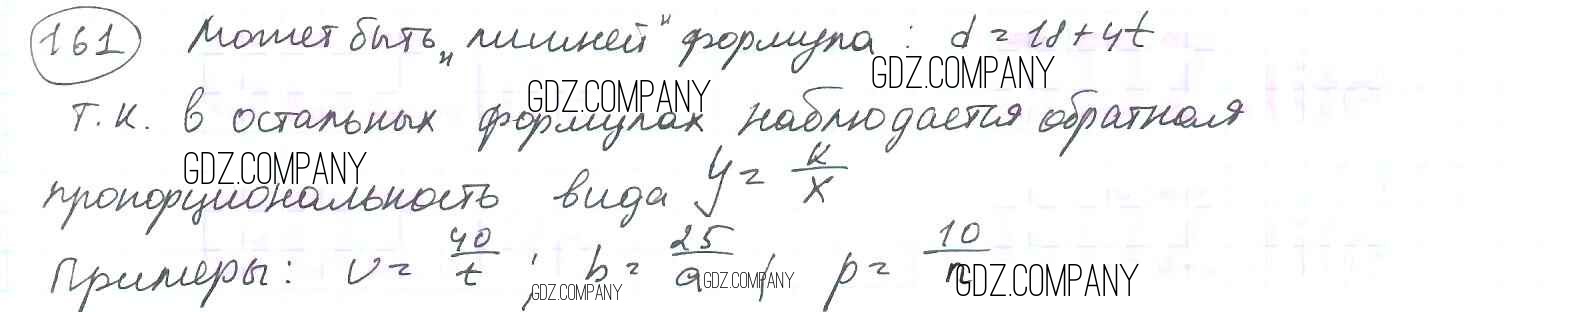 161 Может быть "лишней" формула: d = 18 + 4t
GDZ.COMPANY
GDZ.COMPANY
т.к. в остальных формулах наблюдается обратная
GDZ.COMPANY
пропорциональность вида y = k/x
Примеры: v = 40/t ; b = 25/a ; p = 10/n
GDZ.COMPANY GDZ.COMPANY GDZ.COMPANY